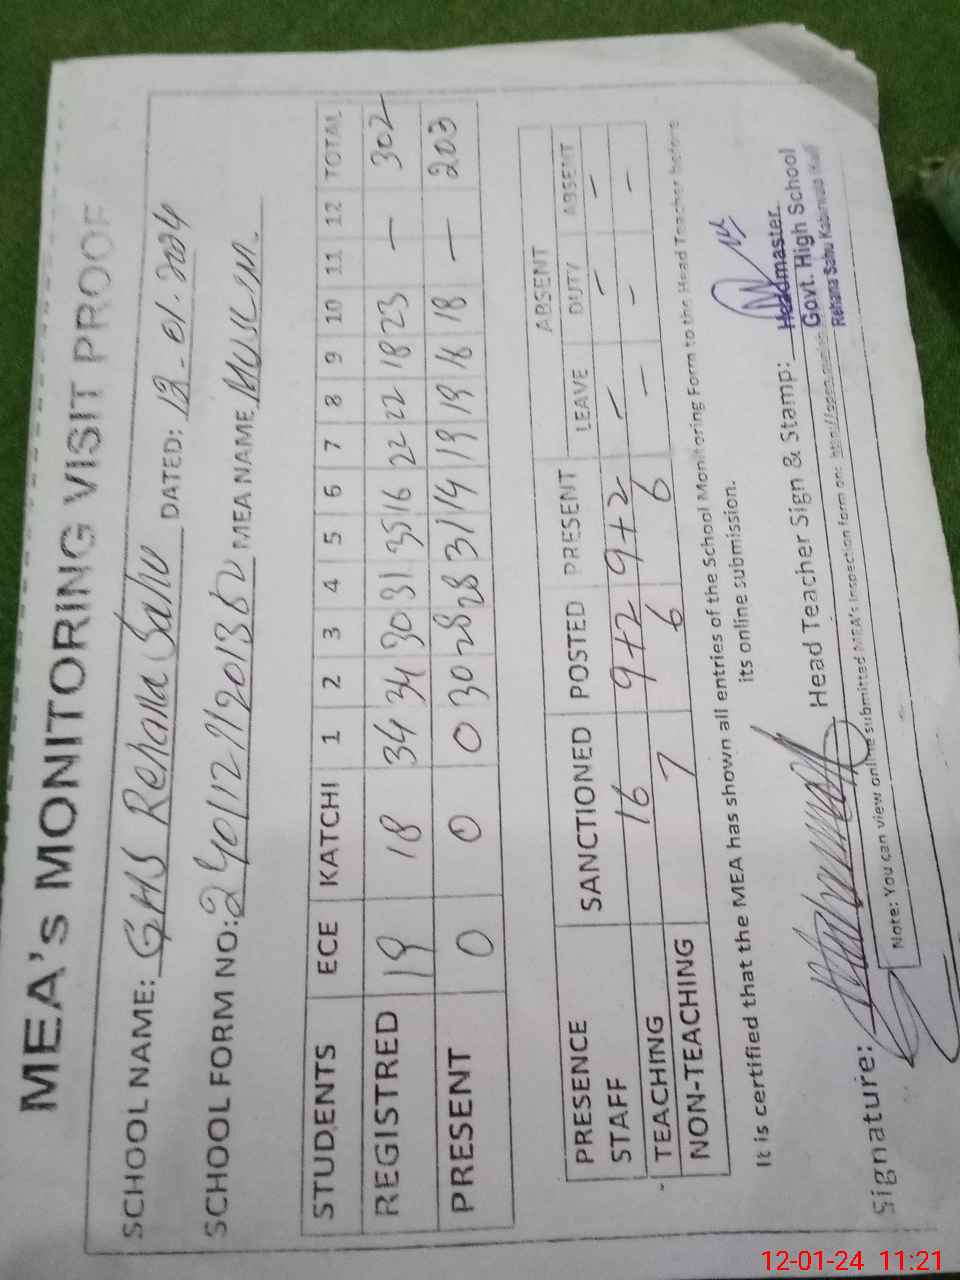 MEA's MONITORING VISIT PROOF
SCHOOL NAME: GHS Rehana Sahu DATED: 12-01-2024
SCHOOL FORM NO: MEA NAME
STUDENTS ECE KATCHI 1 2 3 4 5 6 7 8 9 10 11 12 TOTAL
REGISTRED 19 18 34 34 30 31 35 16 22 22 18 23 — 302
PRESENT 0 0 0 30 28 28 31 14 19 19 16 18 — 203
ABSENT
PRESENCE SANCTIONED POSTED PRESENT LEAVE DUTY ABSENT
STAFF 16 9+2 9+2 - - -
TEACHING 7 6 6 - - -
NON-TEACHING
It is certified that the MEA has shown all entries of the School Monitoring Form to the Head Teacher before
its online submission.
Signature: Head Teacher Sign & Stamp: Headmaster.
Govt. High School
Rehana Sahu Kabirwala
Note: You can view online submitted MEA's inspection form on:
12-01-24 11:21